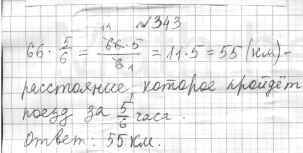 №343
66 · 5/6 = 66 · 5 / 6 = 11 · 5 = 55 (км) -
расстояние, которое пройдёт
поезд за 5/6 часа.
Ответ: 55 км.